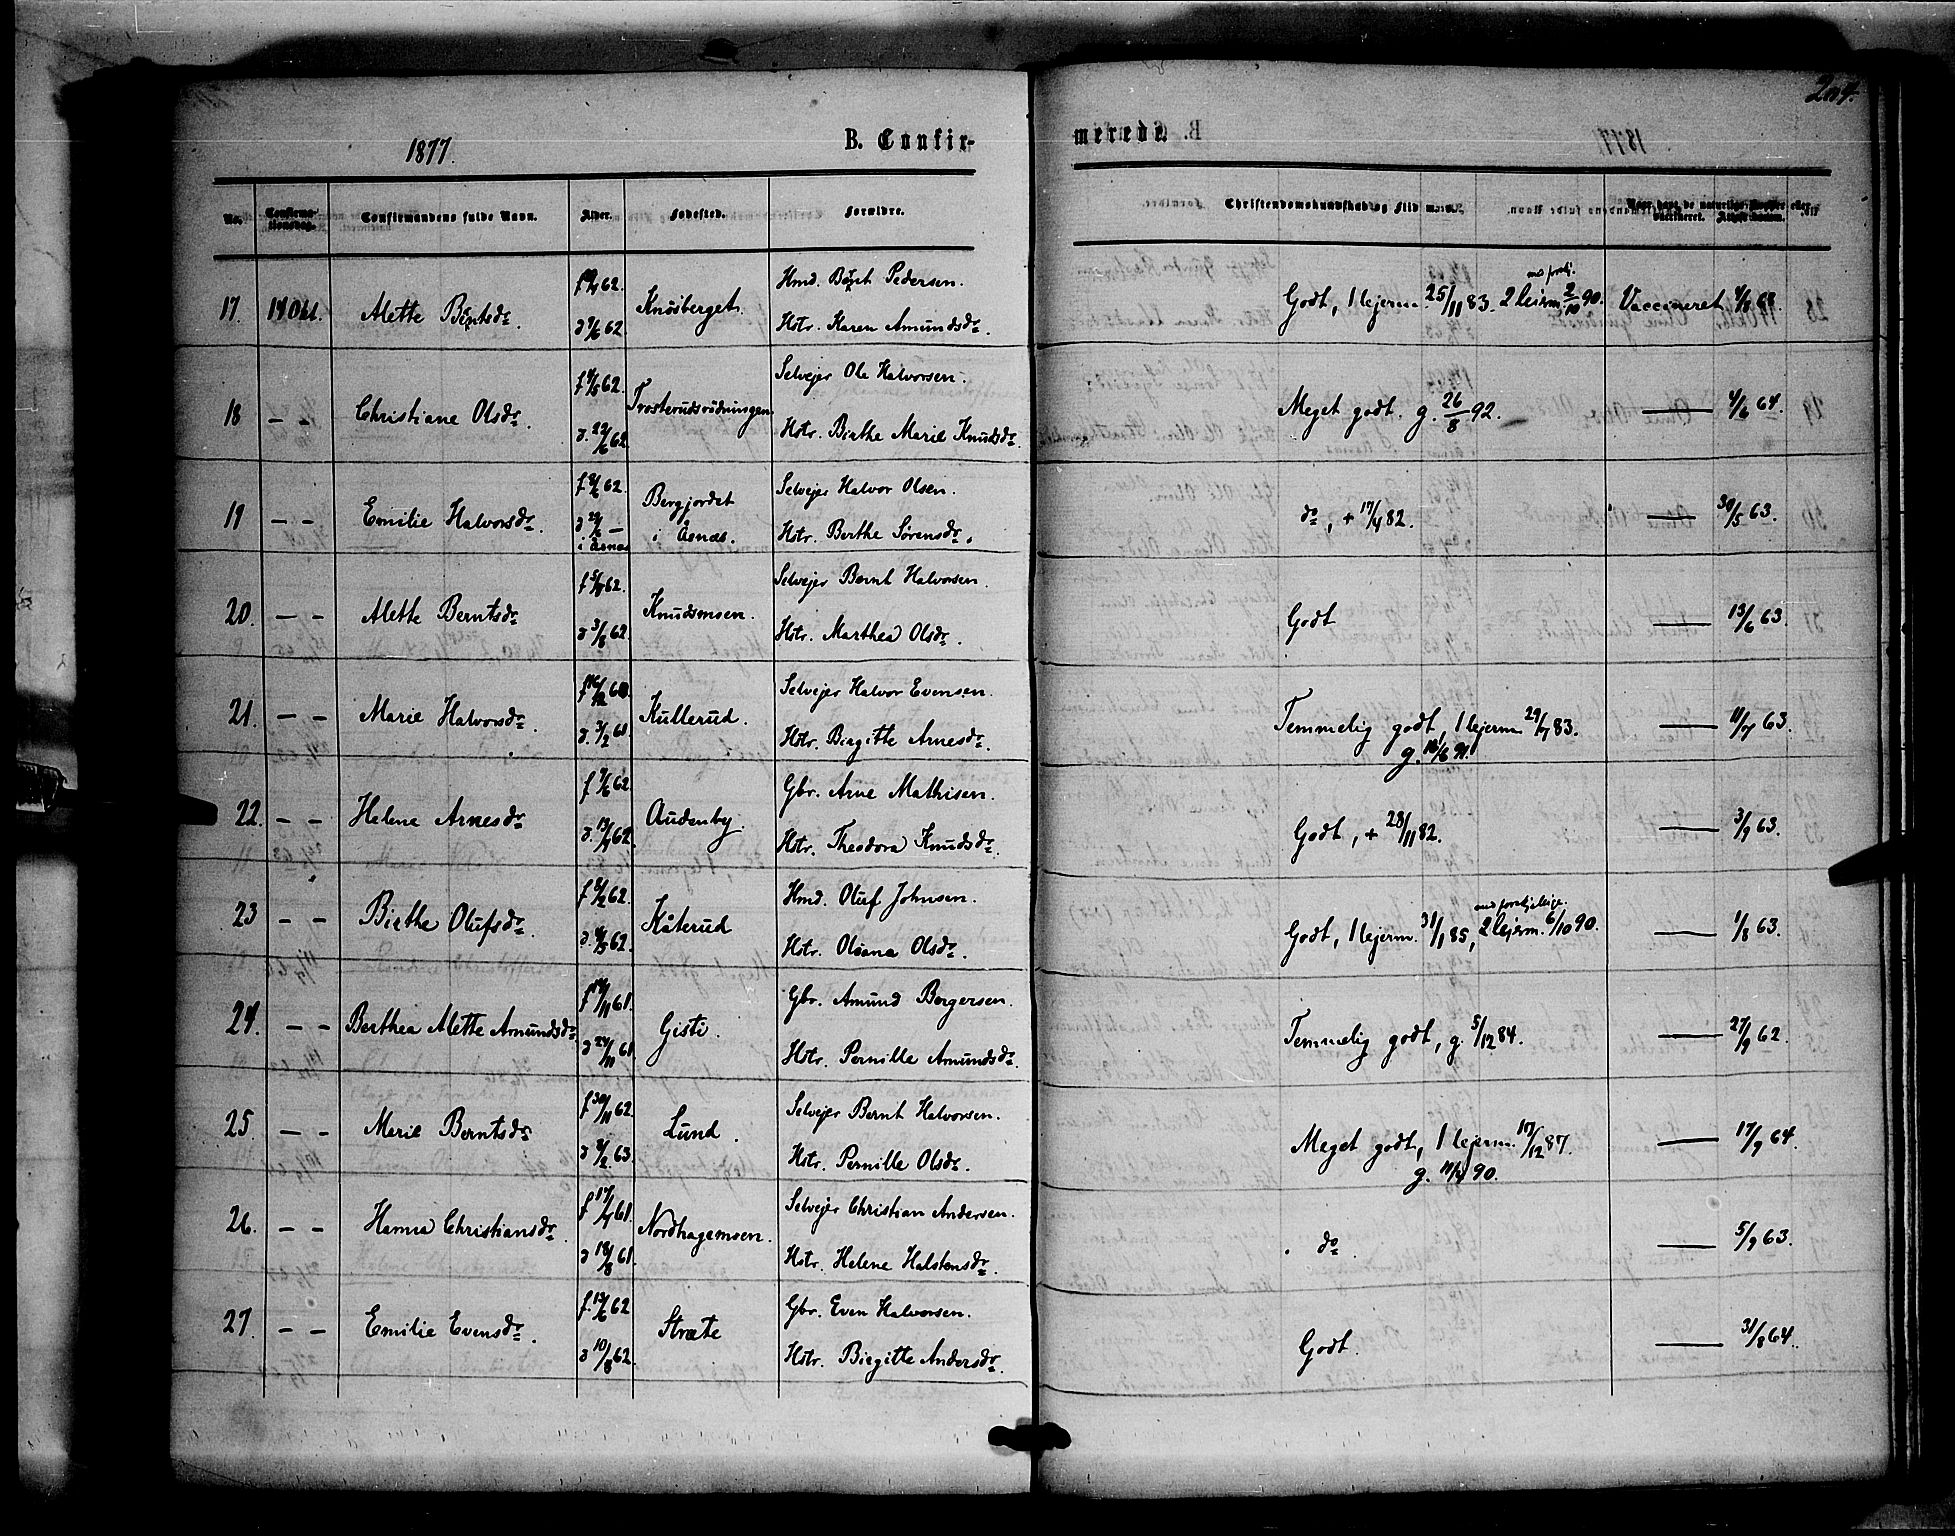 204.
1877.
B. Confir-
merede.
No.
Confirma-
tionsdag.
Confirmandens fulde Navn.
Alder.
Fødested.
Forældre.
Christendomskundskab og Flid
Naar havt de naturlige Kopper eller
vaccineret.
17. 14 Oct. Alette Bəntsdr.
f 62.
Knösberget.
Hmd. Bent Pedersen.
Hstr. Karen Amundsdr.
Godt, 1 lejerm. 25/11 83. 2 leirm 2/10 90.
Vaccineret 4/8 68.
18 – – Christiane Olsdr.
d. 22/6 62
Trosterudsrödningen
Selvejer Ole Halvorsen.
Hstr. Birthe Marie Knudsdr.
Meget godt. g. 26/8 92.
— 4/6 64.
19 – – Emilie Halvorsdr.
i Aasnæs
Bergjordet
i Aasnæs.
Selvejer Halvor Olsen.
Hstr. Berthe Sørensdr.
do, + 17/4 82.
— 30/5 63.
20. – – Alette Berntsdr
f 5/7 62.
d 3/8 62.
Knudsmoen.
Selvejer Bernt Halvorsen.
Hstr. Marthea Olsdr.
Godt
— 13/6 63.
21. – – Marie Halvorsdr.
d. 3/2 61.
Kullerud.
Selvejer Halvor Evensen.
Hstr. Birgitte Arnesdr.
Temmelig godt, 1 lejerm. 29/7 83.
g. 91.
— 11/7 63.
22. – – Helene Arnesdr
f 7/6 62
d. 13/7 62.
Audenby.
Gbr. Arne Mathisen.
Hstr. Theodora Knudsdr.
Godt, + 28/11 82.
— 3/9 63.
23 – – Birthe Olufsdr.
f 62.
d. 62.
Kåterud
Hmd. Oluf Johnsen.
Hstr. Oleana Olsdr.
Godt, 1 lejerm. 31/1 85, 2 lejerm. 6/10 90.
— 1/8 63.
24. – – Berthea Alette Amundsdr
f 61.
d 61.
Gisti.
Gbr. Amund Bergersen.
Hstr. Pernille Amundsdr.
Temmelig godt, g. 5/12 84.
— 27/9 62.
25. – – Marie Berntsdr
f 30/11 62.
d 63.
Lund.
Selvejer Bernt Halvorsen.
Hstr. Pernille Olsdr.
Meget godt, 1 lejerm. 17/12 87.
g. 90.
— 17/9 64.
26. – – Hanna Christiansdr.
f 17/7 61.
d 18/8 61.
Nordhagemoen.
Selvejer Christian Andersen.
Hstr. Helene Halstensdr.
do.
— 5/9 63.
27. – – Emilie Evensdr.
f. 62
d 10/8 62.
Stræte
Gbr. Even Halvorsen.
Hstr. Birgitte Andersdr.
Godt.
— 31/8 64.